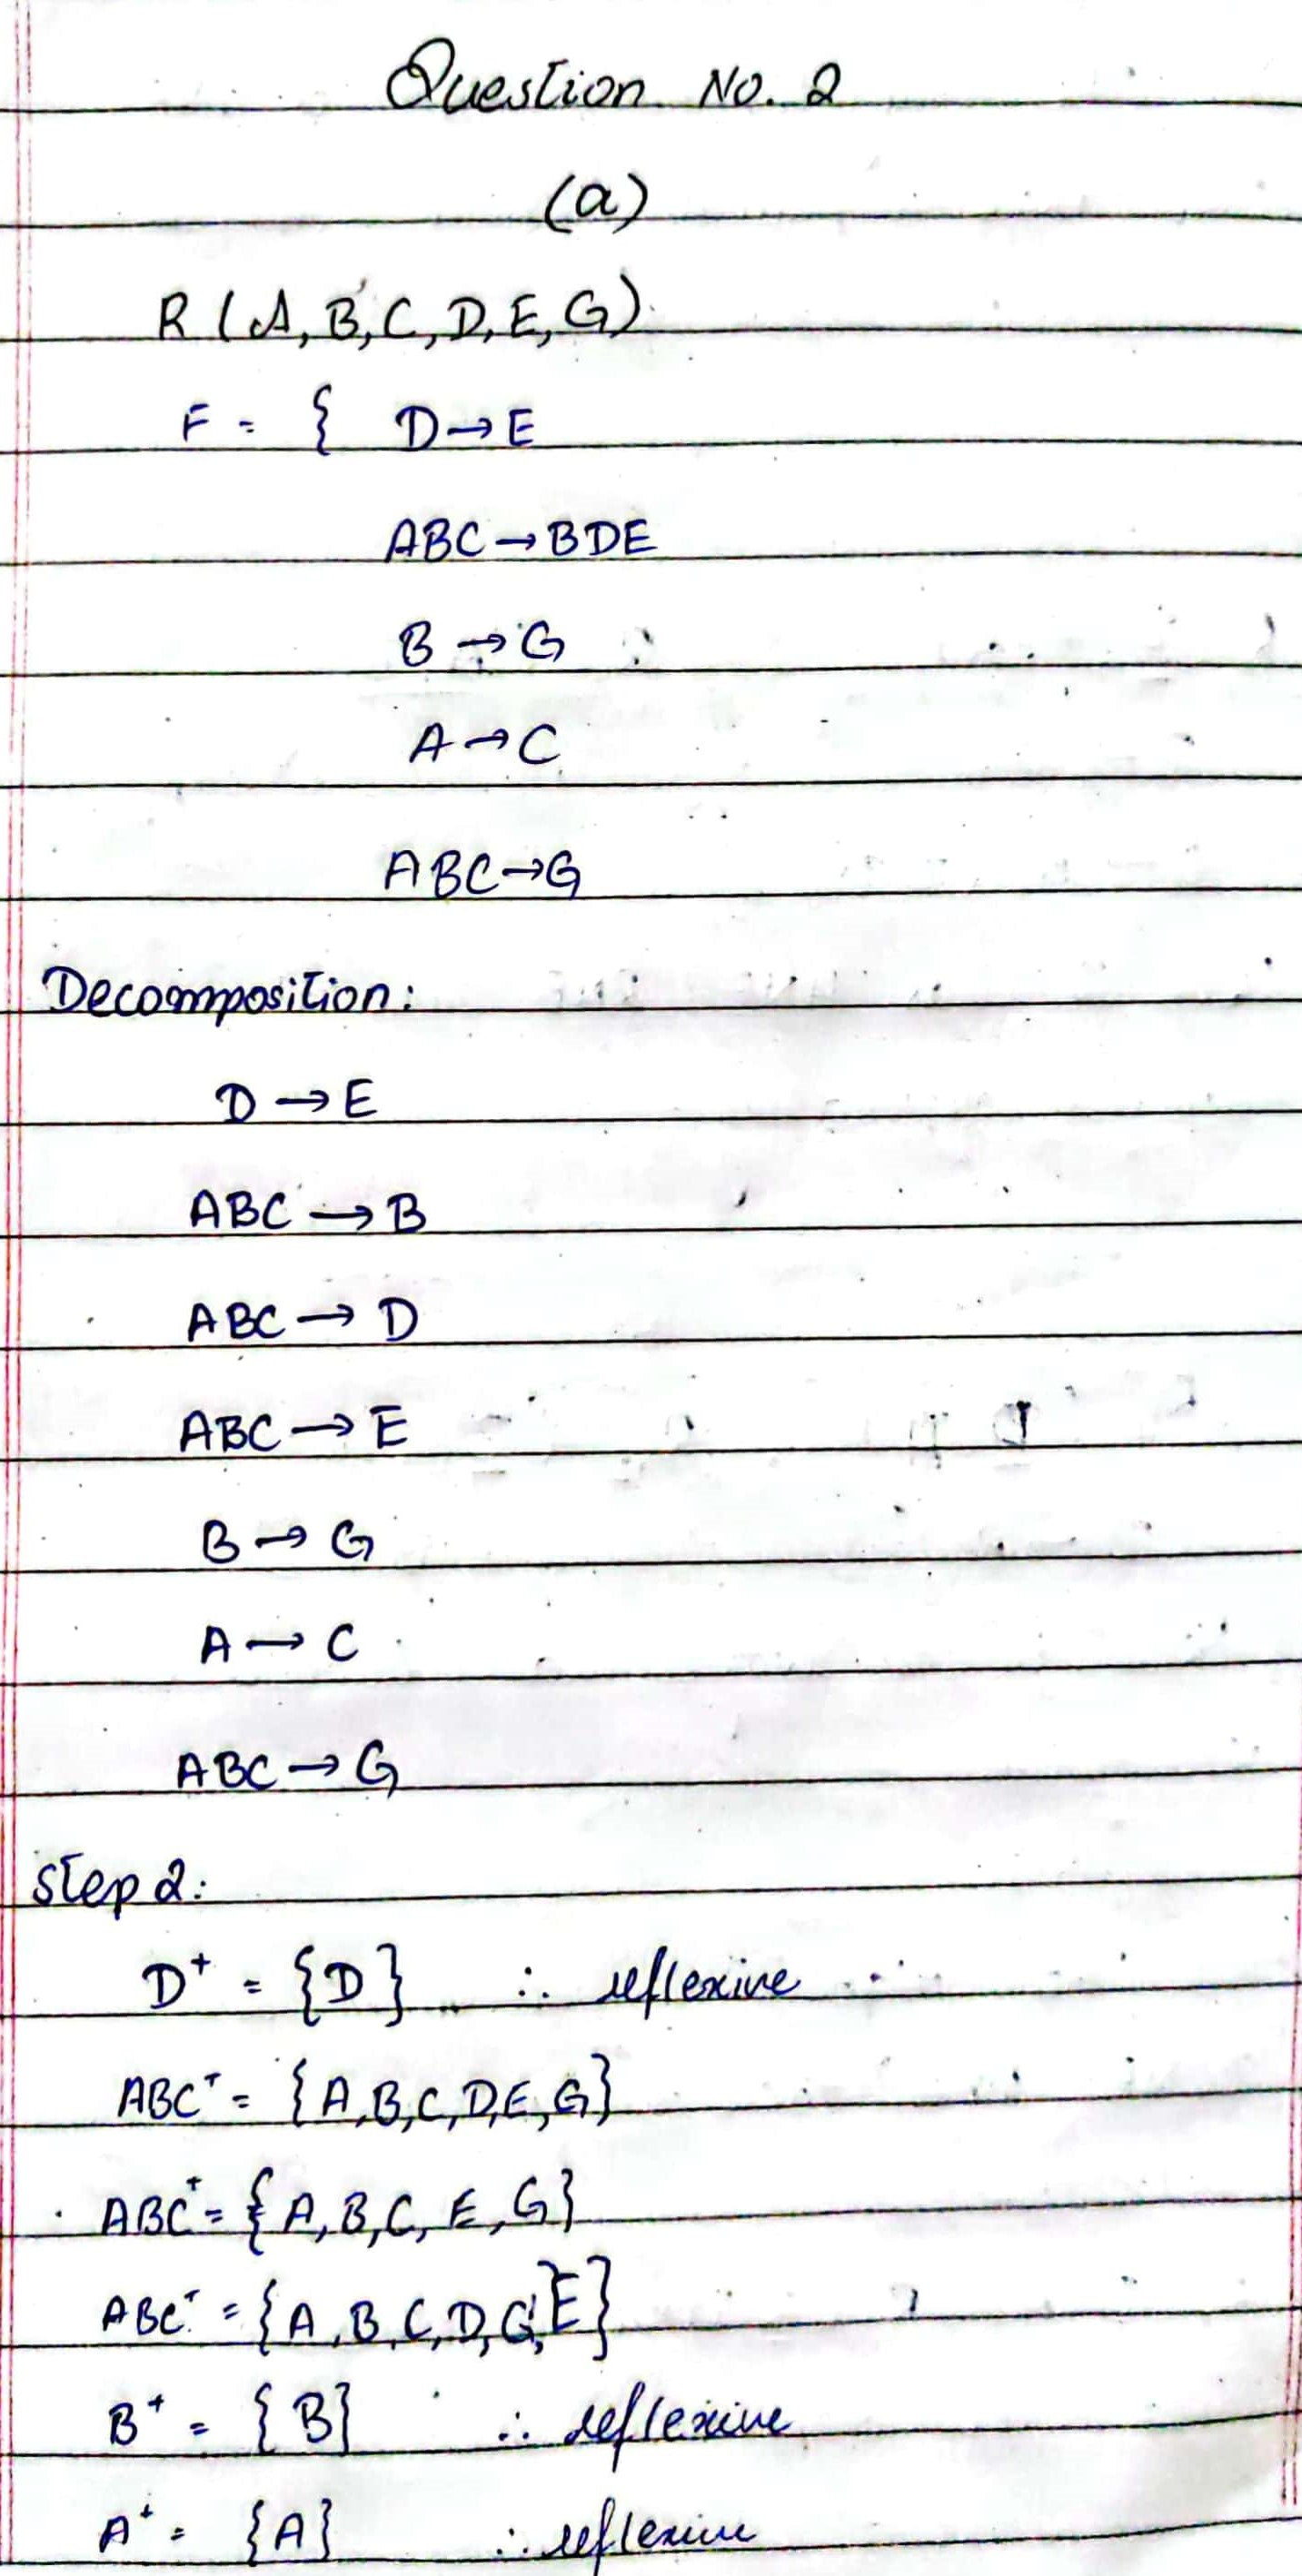 Question No. 2
(a)
R (A, B, C, D, E, G)
F = { D → E
ABC → BDE
B → G
A → C
ABC → G
Decomposition:
D → E
ABC → B
ABC → D
ABC → E
B → G
A → C
ABC → G
Step 2:
D⁺ = {D} ∴ reflexive
ABC⁺ = {A,B,C,D,E,G}
ABC⁺ = {A,B,C,E,G}
ABC⁺ = {A,B,C,D,G,E}
B⁺ = {B} ∴ reflexive
A⁺ = {A} ∴ reflexive